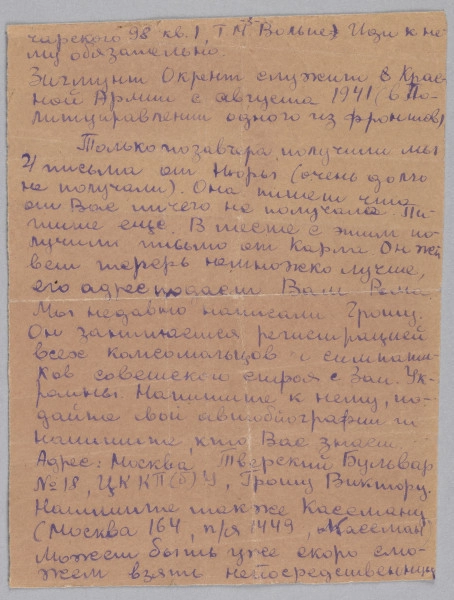 чарского 98 кв. 1, Т М Вольпе) Иди к не-
му обязательно.
Зигмунт Окрент служит в Крас-
ной Армии с августа 1941 (в По-
литуправлении одного из фронтов)
Только позавчера получили мы
2/ письма от Нюры (очень долго
не получали). Она пишет что
от Вас ничего не получала. Пи-
шите ей. Вместе с этим по-
лучили письмо от Карла Он жи
вет теперь немножко лучше,
его адрес подаст Вам
Мы недавно написали Грошу.
Он занимается регистрацией
всех комсомольцов и симпати-
ков советского строя с Зап. Ук-
раины. Напишите к нему, по-
дайте свой автобиографии и
напишите, кто Вас знает.
Адрес: Москва Тверский Бульвар
№ 18, ЦК КП(б)У, Грошу Виктору.
Напишите также Кассману
(Москва 164, п/я 1449, Кассман
Может быть уже скоро смо-
жем взять непосредственную